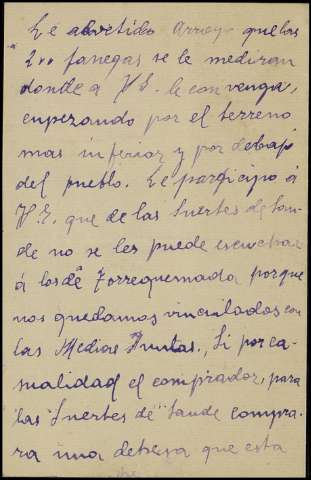 Le advertido Arroyo que las
200 fanegas se le mediran
donde a V.E. le convenga,
empezando por el terreno
mas inferior y por debajo
del pueblo. Le participo á
V.E. que de las Suertes de San-
de no se les puede escuchar
á los de Torrequemada porque
nos quedamos vinculados con
las Medias Juntas, Si por ca-
sualidad el comprador, para
las "Suertes de" Sande compra-
ra una dehesa que esta